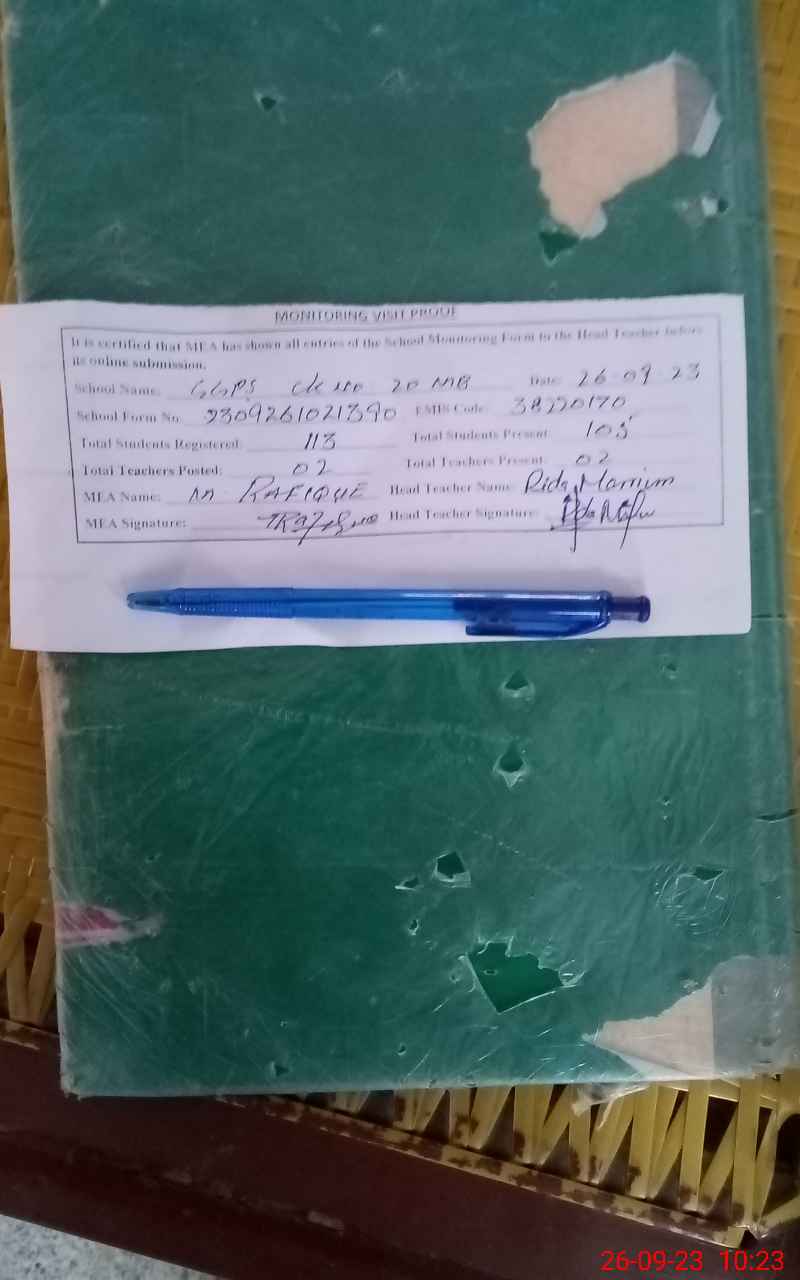 MONITORING VISIT PROOF
It is certified that MEA has shown all entries of the School Monitoring Form to the Head Teacher before
its online submission.
School Name: GGPS Ck no 20 MB Date: 26-09-23
School Form No. 2309261021390 EMIS Code: 38220170
Total Students Registered: 113 Total Students Present: 105
Total Teachers Posted: 02 Total Teachers Present: 02
MEA Name: M RAFIQUE Head Teacher Name: Rida Marrium
MEA Signature: Head Teacher Signature:
26-09-23 10:23